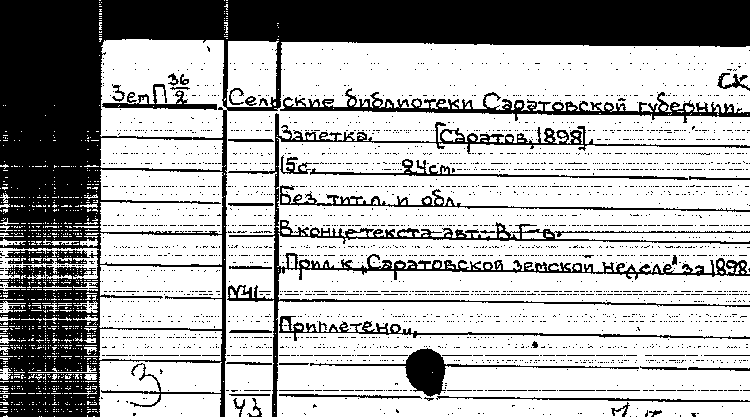 СК
ЗемП 36/2
Сельские библиотеки Саратовской губернии.
Заметка. [Саратов, 1898].
15с. 24см.
Без тит.л. и обл.
В конце текста авт.: В.Г-в.
„Прил. к „Саратовской земской неделе" за 1898
N41.
Приплетено".
3
43